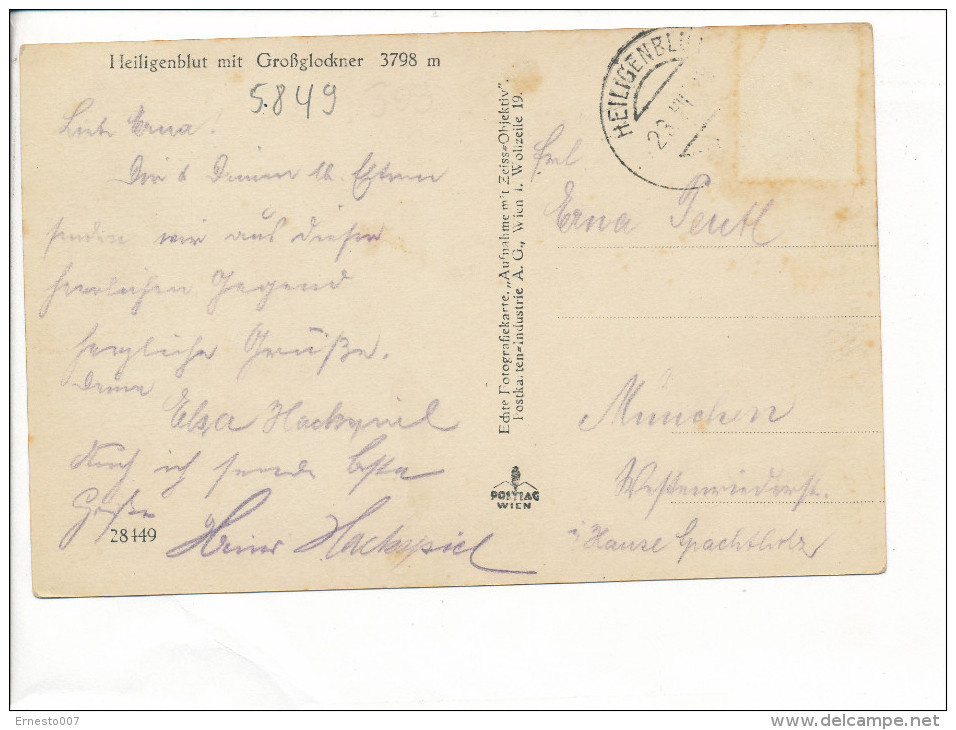 Heiligenblut mit Großglockner 3798 m
5.849
Liebe Erna!
Dir & Deinen lb. Eltern
senden wir aus dieser
herrlichen Gegend
herzliche Grüße.
Deine
Elsa Hackspiel
Auch ich sende beste
Grüße
Heiner Hackspiel
28449
Echte Fotografiekarte, „Aufnahme mit Zeiss=Objektiv".
Postkarten=Industrie A. G., Wien I. Wollzeile 19.
POSTIAG
WIEN
HEILIGENBLUT
Frl
Erna
München
Westenriederst.
i. Hause
Ernesto007
delcampe.net